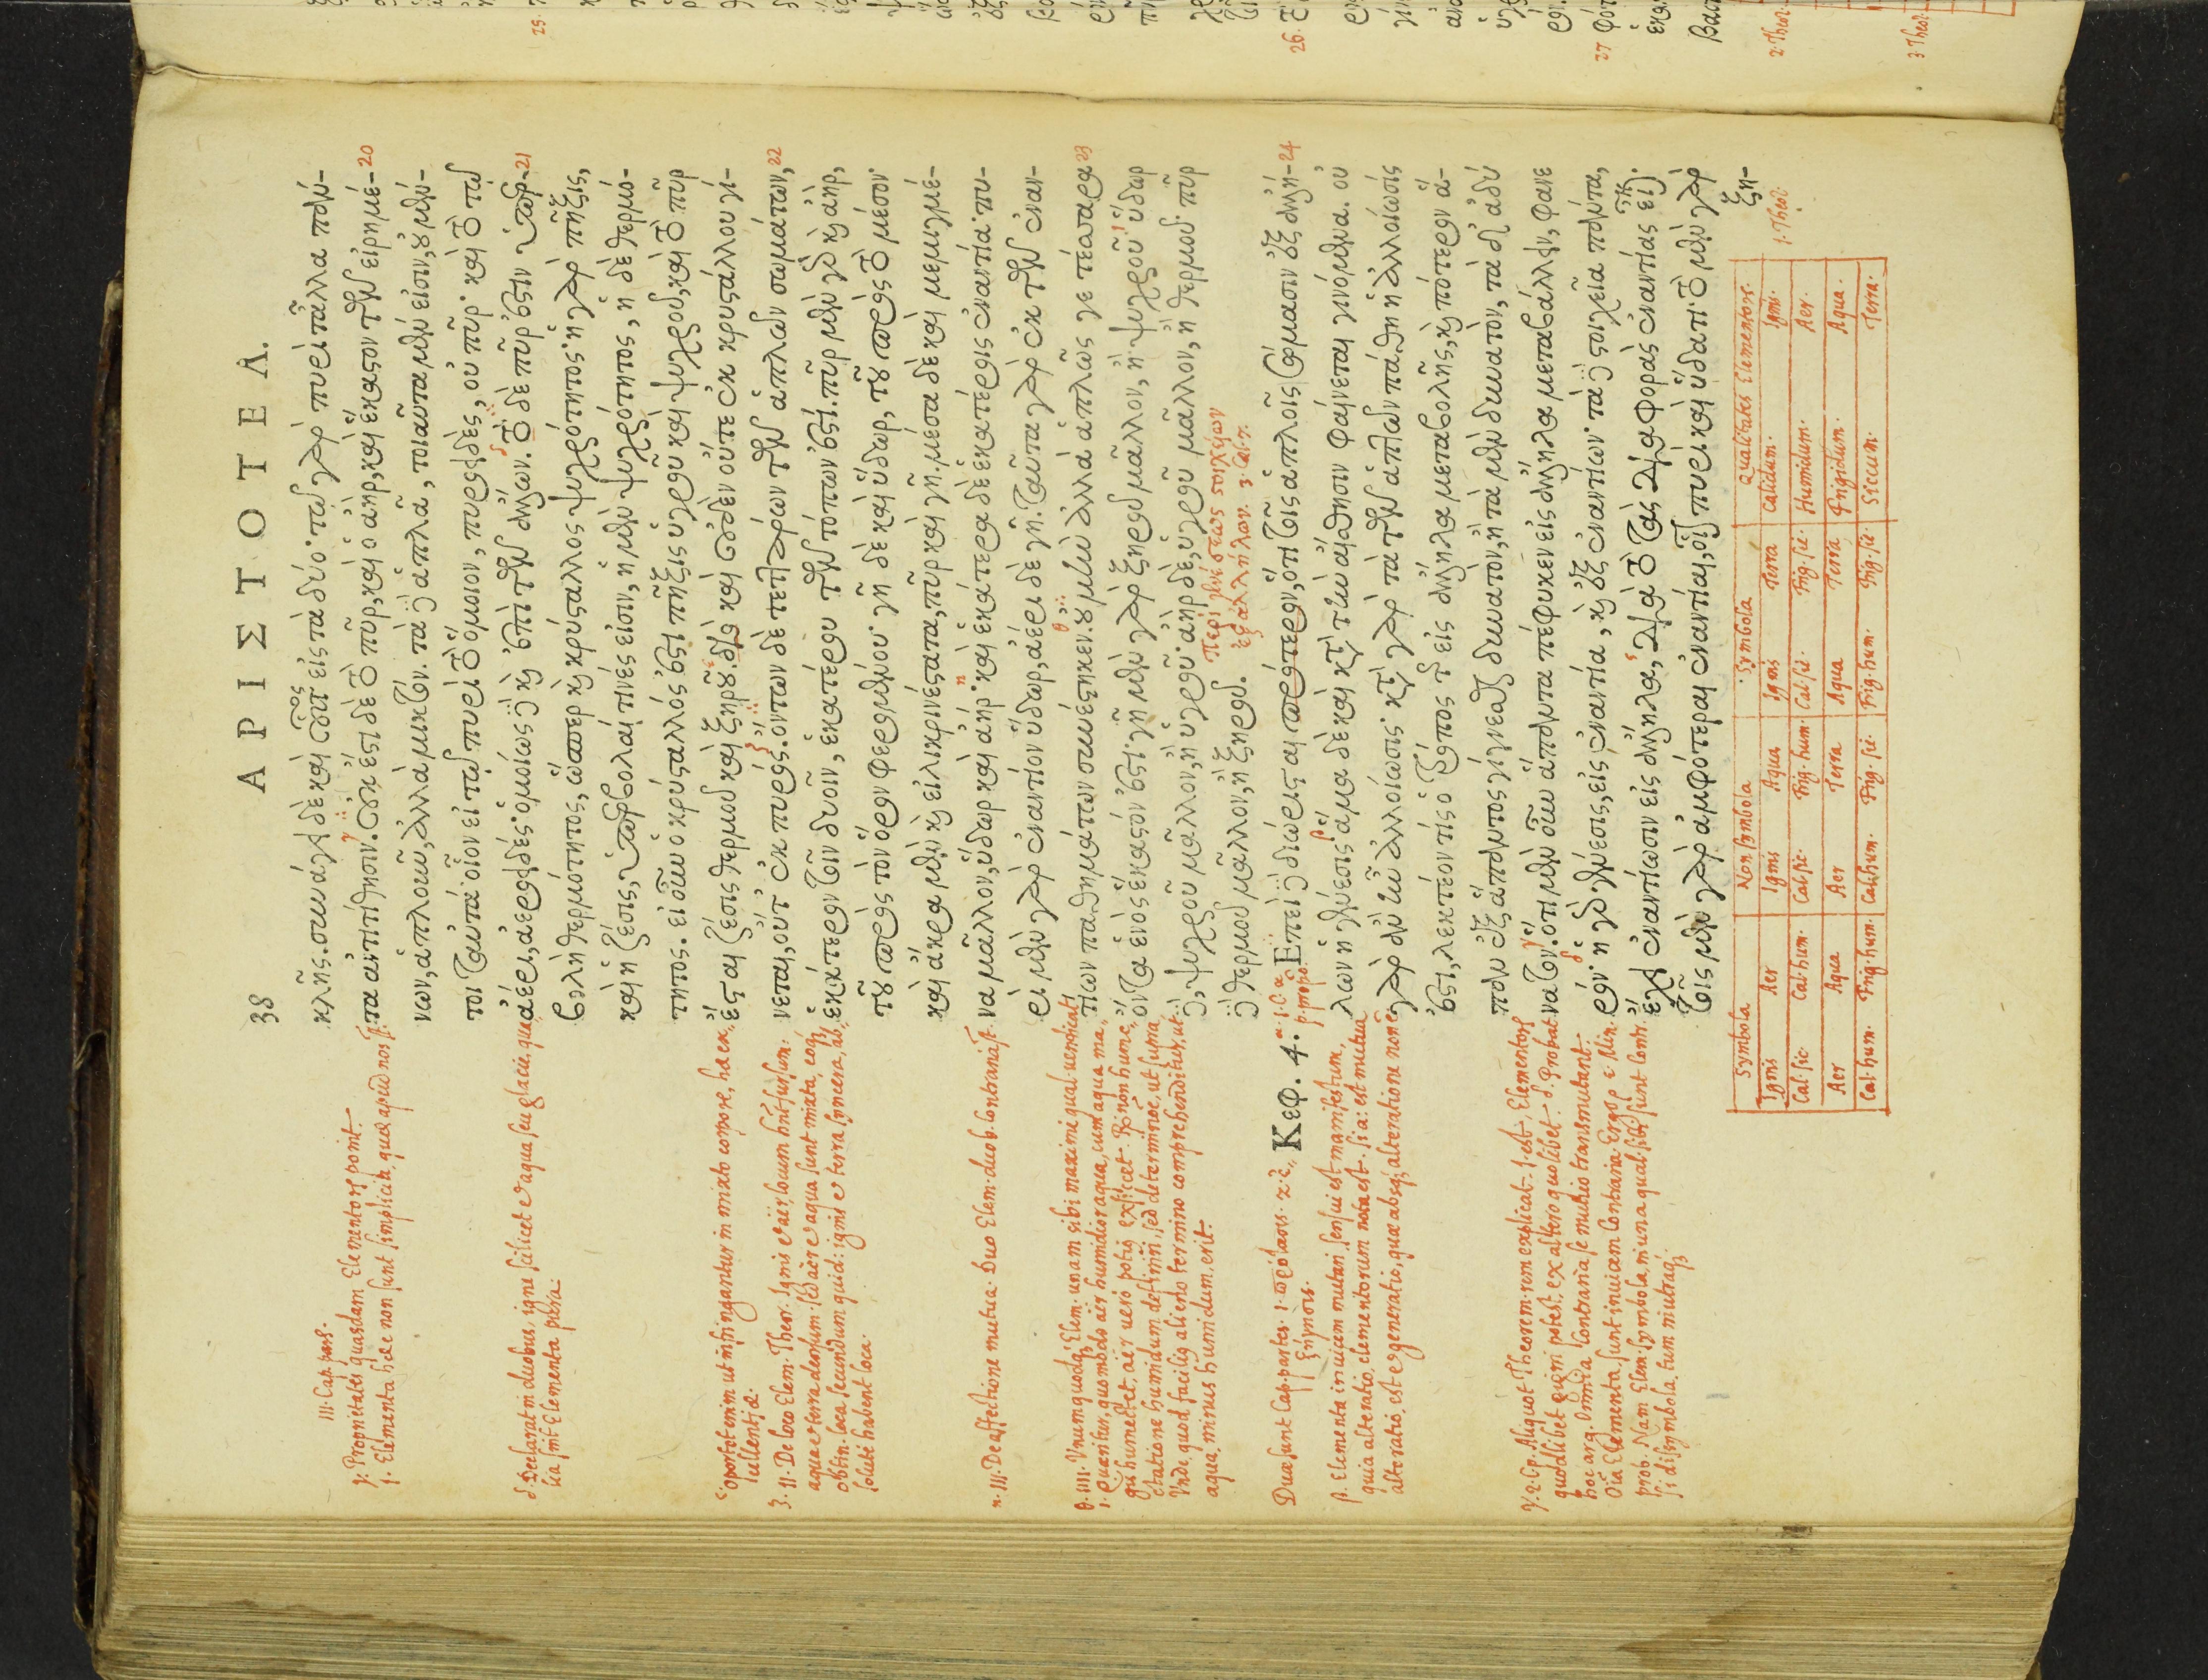 38
Α Ρ Ι Σ Τ Ο Τ Ε Λ.
κλῆς. συνάγει δὲ καὶ οὗτος εἰς τὰ δύο· τῷ γὰρ πυρὶ τἆλλα πάν-
τα ἀντιτίθησιν. οὐκ ἔστι δὲ τὸ πῦρ, καὶ ὁ ἀὴρ, καὶ ἕκαστον τῶν εἰρημέ- 20
νων, ἁπλοῦν, ἀλλὰ μικτόν. τὰ δ' ἁπλᾶ, τοιαῦτα μέν εἰσιν, οὐ μέν-
τοι ταὐτά· οἷον εἴ τῳ πυρὶ τὸ ὅμοιον, πυροειδὲς, οὐ πῦρ· καὶ τὸ τῷ
ἀέρι, ἀεροειδές· ὁμοίως δὲ κἠ ἐπὶ τῶν ἄλλων. τὸ δὲ πῦρ ἐστὶν ὑπερ- 21
βολὴ θερμότητος, ὥσπερ κὶ κρύσταλλος ψυχρότητος· ἡ γὰρ πῆξις,
καὶ ἡ ζέσις, ὑπερβολαί τινές εἰσιν, ἡ μὲν ψυχρότητος, ἡ δὲ θερμό-
τητος. εἰ οὖν ὁ κρύσταλλός ἐστι πῆξις ὑγροῦ καὶ ψυχροῦ, καὶ τὸ πῦρ
ἔσται ζέσις θερμοῦ καὶ ξηροῦ. διὸ καὶ οὐδὲν οὔτε ἐκ κρυστάλλου γί-
νεται, οὔτ' ἐκ πυρός. ὄντων δὲ τεττάρων τῶν ἁπλῶν σωμάτων, 22
ἑκάτερον τοῖν δυοῖν, ἑκατέρου τῶν τόπων ἐστί. πῦρ μὲν γὸ κὶ ἀὴρ,
τοῦ πρὸς τὸν ὅρον φερομένου· γῆ δὲ καὶ ὕδωρ, τοῦ πρὸς τὸ μέσον·
καὶ ἄκρα μὲν κὶ εἰλικρινέστατα, πῦρ καὶ γῆ· μέσα δὲ καὶ μεμιγμέ-
να μᾶλλον, ὕδωρ καὶ ἀήρ· καὶ ἑκάτερα δὲ ἑκατέροις ἐναντία· πυ-
ρὶ μὲν γὰρ ἐναντίον ὕδωρ, ἀέρι δὲ γῆ. ταῦτα γὰρ ἐκ τῶν ἐναν-
τίων παθημάτων συνέστηκεν. οὐ μὴν ἀλλὰ ἁπλῶς γε τέσσαρα 23
ὄντα ἑνὸς ἕκαστόν ἐστι· γῆ μὲν γὰρ ξηροῦ μᾶλλον, ἢ ψυχροῦ· ὕδωρ
δ', ψυχροῦ μᾶλλον, ἢ ὑγροῦ· ἀὴρ δὲ, ὑγροῦ μᾶλλον, ἢ θερμοῦ· πῦρ
δὲ θερμοῦ μᾶλλον, ἢ ξηροῦ.
περὶ γενέσεως στοιχείων
ἐξ ἀλλήλων. 3. ζωι. 7.
Κεφ. 4. Επεὶ δὲ διώρισται πρότερον, ὅτι τοῖς ἁπλοῖς σώμασιν ἐξ ἀλλή- 24
λων ἡ γένεσις· ἅμα δὲ καὶ κτ τὴν αἴσθησιν φαίνεται γινόμενα. οὐ
γὰρ ἂν ἦν ἀλλοίωσις· κτ γὰρ τὰ τῶν ἁπλῶν πάθη ἡ ἀλλοίωσίς
ἐστι, λεκτέον τίς ὁ τρόπος τ εἰς ἄλληλα μεταβολῆς, κὶ πότερον ἅ-
παν ἐξ ἅπαντος γίγνεσθαι δυνατὸν, ἢ τὰ μὲν δυνατὸν, τὰ δ' ἀδύ
νατον. ὅτι μὲν οὖν ἅπαντα πέφυκεν εἰς ἄλληλα μεταβάλλειν, φανε
ρόν· ἡ γὸ γένεσις, εἰς ἐναντία, κὶ ἐξ ἐναντίων· τὰ δὲ στοιχεῖα πάντα,
ἔχει ἐναντίωσιν εἰς ἄλληλα, διὰ τὸ τὰς διαφορὰς ἐναντίας εἶναι.
τοῖς μὲν γὰρ ἀμφότεραι ἐναντίαι, οἷον πυρὶ καὶ ὕδατι· τὸ μὲν γὰρ
ξη-
III. Cap. pars.
γ. Proprietates quasdam Elementorum ponit.
1. Elementa haec non sunt simplicia, quae apud nos sunt.
δ. Declarat in duobus, igne scilicet et aqua seu glacie, qua
lia sint Elementa pura.
ε. oportet enim ut infringantur in mixto corpore, hae ex
cellentiae.
ζ. II. De loco Elem. Theor. Ignis et aër, locum habent sursum:
aqua et terra deorsum: sed aër et aqua sunt mixta, eoque
obtin. loca secundum quid: ignis et terra syncera, ab
solutè habent loca.
η. III. De affectione mutua. Duo Elem. duob. contraria sunt.
θ. IIII. Vnumquodque Elem. unam sibi maximè qual. uendicat
ι. Quaeritur, quomodo aër humidior aqua, cum aqua ma
gis humectet, aër uero potius exsiccet. Ro non hume
ctatione humidum definiri, sed determinatione, ut supra
Vnde, quod facilius alieno termino comprehenditur, ut
aqua, minus humidum erit.
Duae sunt Cap. partes. 1. πρότασις. 2. ἐ
ξήγησις.
β. Elementa inuicem mutari, sensui est manifestum,
quia alteratio elementorum nota est. sia: est mutua
alteratio, est et generatio, quae absque alteratione non est
γ. 2. Cp. Aliquot Theorem. rem explicat. 1. est, Elementorum
quodlibet gigni potest, ex altero quolibet. δ. Probat
hoc arg. Omnia contraria se mutuò transmutant:
Oia Elementa, sunt inuicem contraria. Ergo. ε. Min.
prob. Nam Elem. symbola, in una qual. sibi sunt contr.
si disymbola, tum in utraque.
Symbola | Non symbola | Symbola | Qualitates Elementorum. 1. Theor.
Ignis Aer | Ignis Aqua | Ignis Terra | Calidum. Ignis.
Cal. sic. Cal. hum. | Cal. sic. Frig. hum. | Cal. sic. Frig. sic. | Humidum. Aer.
Aer Aqua | Aer Terra | Aqua Terra | Frigidum. Aqua.
Cal. hum. Frig. hum. | Cal. hum. Frig. sic. | Frig. hum. Frig. sic. | Siccum. Terra.
25.
26.
27
2. Theor.
3. Theor.